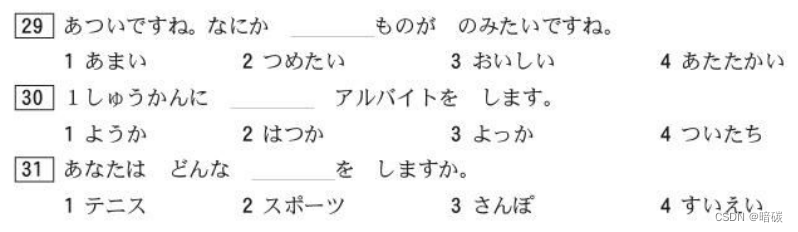 29 あついですね。なにか ________ ものが のみたいですね。
1 あまい 2 つめたい 3 おいしい 4 あたたかい
30 1しゅうかんに ________ アルバイトを します。
1 ようか 2 はつか 3 よっか 4 ついたち
31 あなたは どんな ________ を しますか。
1 テニス 2 スポーツ 3 さんぽ 4 すいえい
CSDN @暗碳